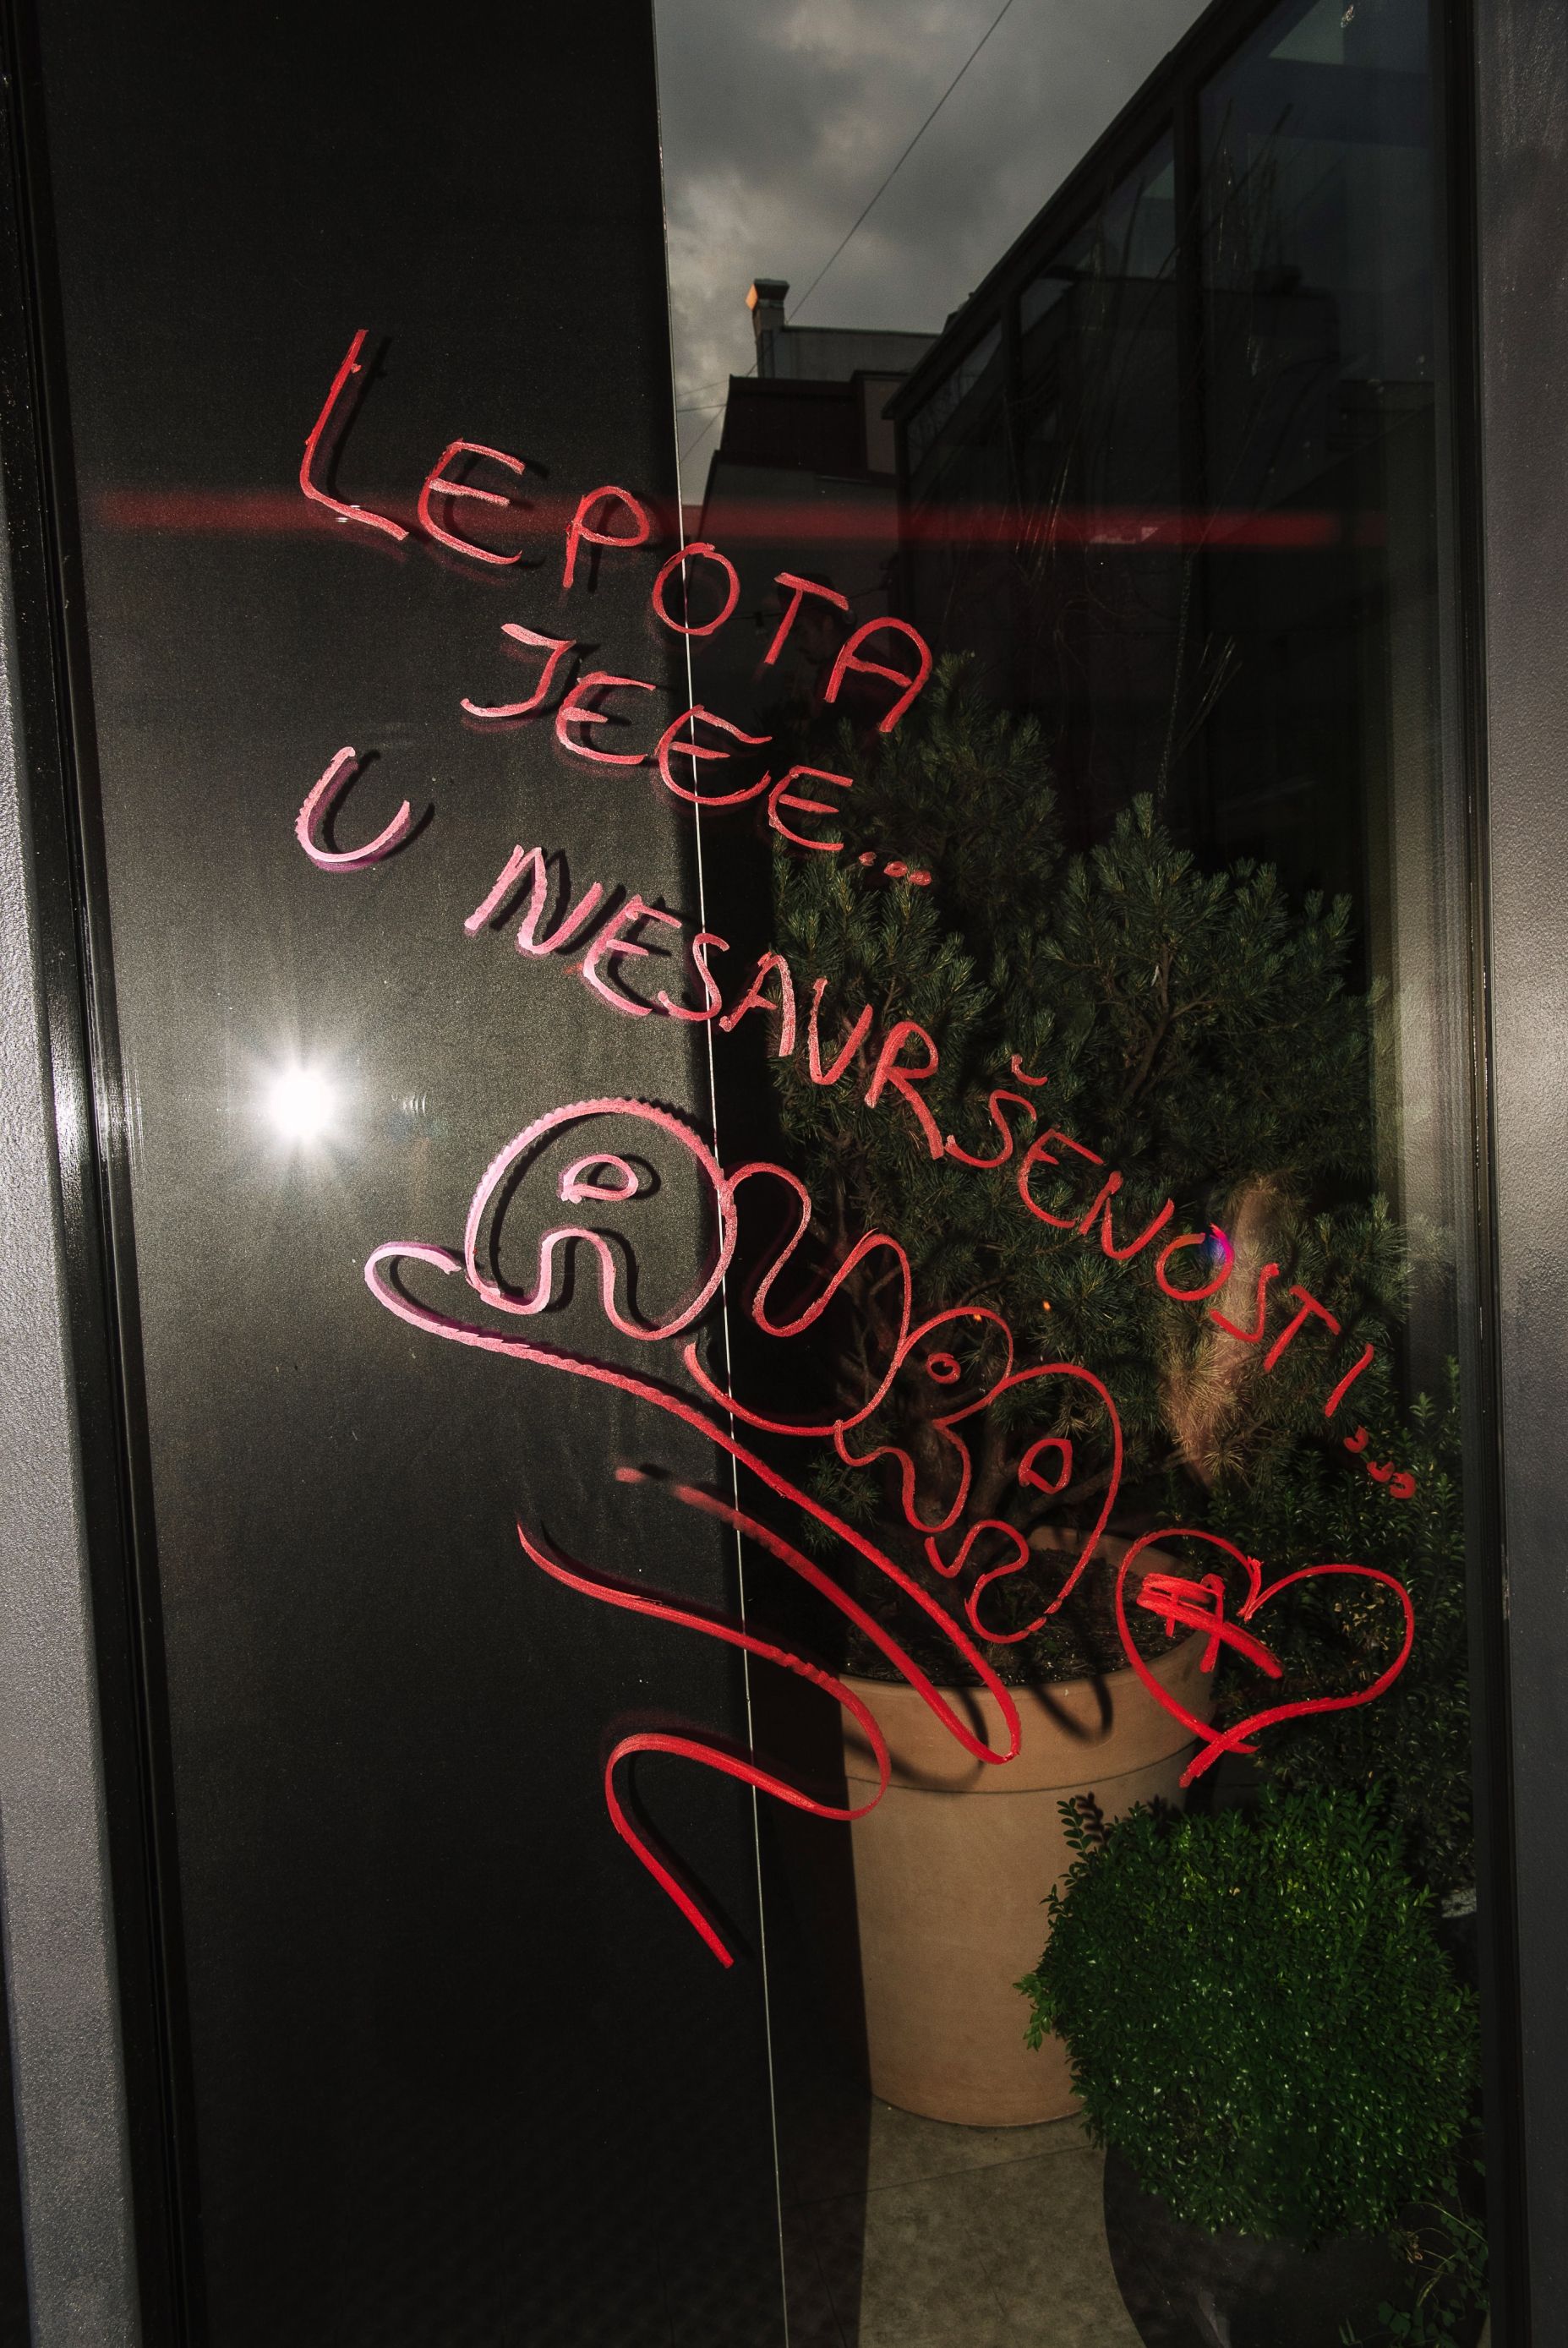 LEPOTA
JEEE...
U NESAVRŠENOSTI...
AURA